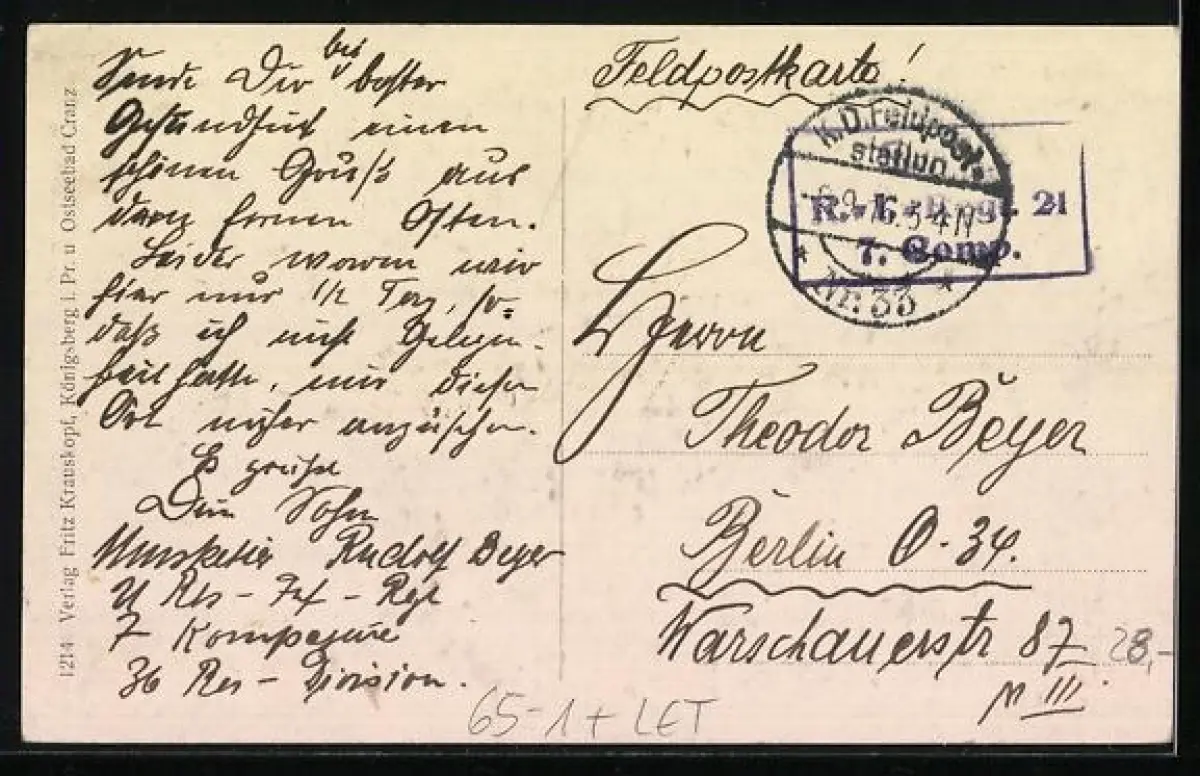 1214 Verlag Fritz Krauskopf, Königsberg i. Pr. u Ostseebad Cranz
Sende Dir bei bester
Gesundheit einen
schönen Gruß aus
dem fernen Osten.
Leider waren wir
hier nur 1/2 Tag, so-
daß ich nicht Gelegen-
heit hatte, mir diesen
Ort näher anzusehen.
Es grüßt
Dein Sohn
Musketier Rudolf Beyer
21 Res - Inf - Rgt
7 Kompagnie
36 Res - Division.
Feldpostkarte!
K.D. Feldpost-
station
Nr. 33
R.-I.-Regt. 21
7. Comp.
Herrn
Theodor Beyer
Berlin O-34.
Warschauerstr 87
III
28,-
65-1+ LET